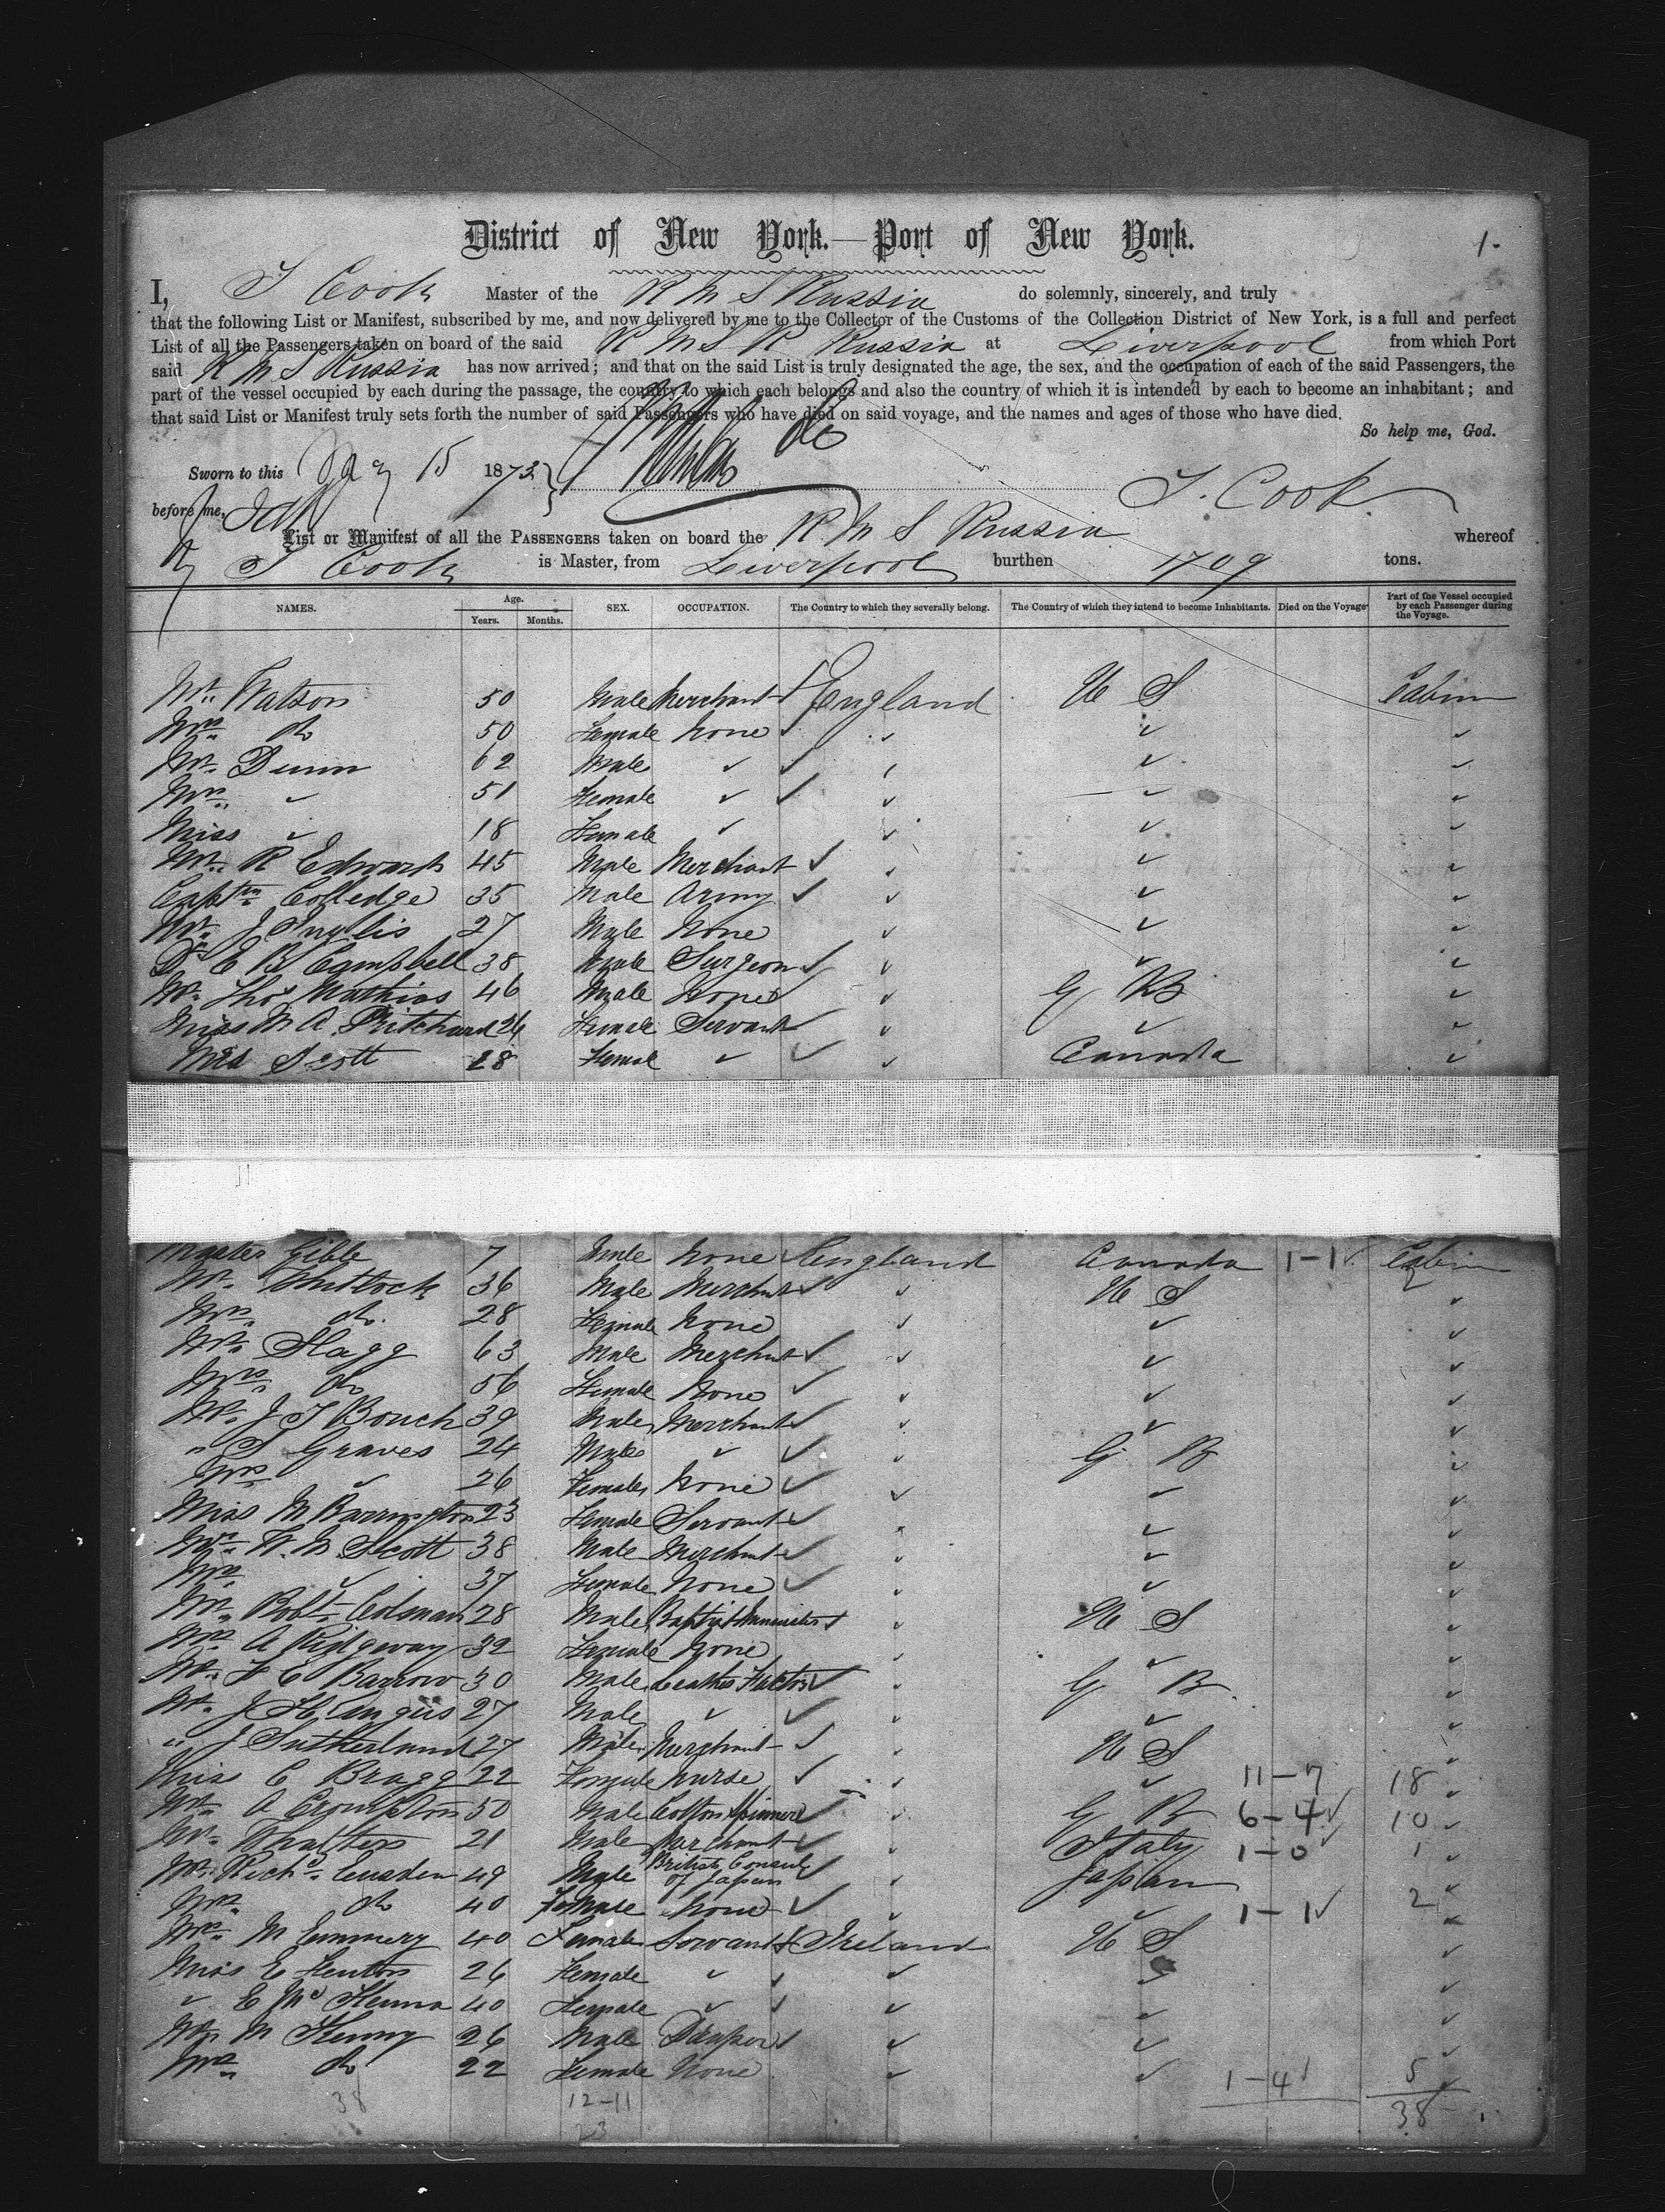 District of New York.—Port of New York.
1.
I, T Cook Master of the R M S Russia do solemnly, sincerely, and truly
that the following List or Manifest, subscribed by me, and now delivered by me to the Collector of the Customs of the Collection District of New York, is a full and perfect
List of all the Passengers taken on board of the said R M S R Russia at Liverpool from which Port
said R M S Russia has now arrived; and that on the said List is truly designated the age, the sex, and the occupation of each of the said Passengers, the
part of the vessel occupied by each during the passage, the country to which each belongs and also the country of which it is intended by each to become an inhabitant; and
that said List or Manifest truly sets forth the number of said Passengers who have died on said voyage, and the names and ages of those who have died.
So help me, God.
Sworn to this May 15 1873
T. Cook.
before me,
List or Manifest of all the PASSENGERS taken on board the R. M S Russia whereof
T Cook is Master, from Liverpool burthen 1709 tons.
NAMES. Age. Years. Months. SEX. OCCUPATION. The Country to which they severally belong. The Country of which they intend to become Inhabitants. Died on the Voyage Part of the Vessel occupied by each Passenger during the Voyage.
Mr. Watson 50 Male Merchant England U S Cabin
Mrs. do 50 Female None
Mr. Dunn 62 Male
Mrs. 51 Female
Miss 18 Female
Mr. R Edwards 45 Male Merchant
Captn Colledge 35 Male Army
Mr. J Inglis 27 Male None
Dr E B Campbell 38 Male Surgeon
Mr. Thos Mathias 46 Male None G B
Miss M A Pritchard 26 Female Servant
Miss Scott 28 Femal Canada
Master Gibb 7 Male None England Canada 1-1 Cabin
Mr. Whitlock 36 Male Merchant U S
Mrs. do. 28 Female None
Mr. Slagg 63 Male Merchant
Mrs. do 56 Female None
Mr. J T Bouch 39 Male Merchant
" S Graves 24 Male G B
Mrs 26 Female None
Miss M Barrington 23 Female Servant
Mr. W. M Scott 38 Male Merchant
Mrs 37 Female None
Mr. Robt Colsman 28 Male Baptist Minister U S
Mrs A Ridgway 32 Female None
Mr. F E Barrow 30 Male Leather Factor G B.
Mr. J H Angus 27 Male
" J Sutherland 27 Male Merchant U S
Miss C Bragg 22 Female Nurse 11-7 18
Mr. A Crompton 50 Male Cotton Spinner G B 6-4 10
Mr. Thalters 21 Male Merchant Italy 1-0 1
Mr. Richd. Eusden 49 Male British Consul of Japan Japan
Mrs. do 40 Female None 1-1 2
Mrs. M Emmery 40 Female Servant Ireland U S
Miss E Fenton 26 Female
E Mc Kenna 40 Female
Mr. M Kenny 26 Male Draper
Mrs. do 22 Female None 1-4 5
38 12-11 38
23